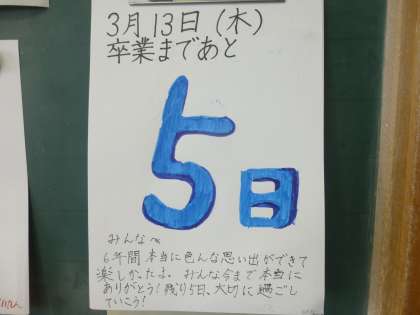 3月13日(木)
卒業まであと
5日
みんなへ
6年間本当に色んな思い出ができて
楽しかったよ。みんな今まで本当に
ありがとう!残り5日、大切に過ごし
ていこう!